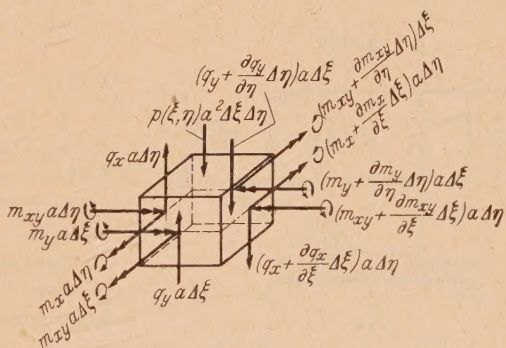 (q_y + ∂q_y/∂η Δη)aΔξ
p(ξ,η)a²ΔξΔη
(m_xy + ∂m_xy/∂η Δη)Δξ
(m_x + ∂m_x/∂ξ Δξ)aΔη
q_x aΔη
(m_y + ∂m_y/∂η Δη)aΔξ
m_xy aΔη
(m_xy + ∂m_xy/∂ξ Δξ)aΔη
m_y aΔξ
(q_x + ∂q_x/∂ξ Δξ)aΔη
m_x aΔη
m_xy aΔξ
q_y aΔξ